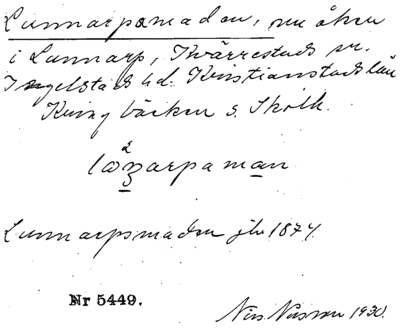 Lunnarpsmaden, nu åker
i Lunnarp, Kvärrestads sn.
Ingelstads hd. Kristianstads län
Kring bäcken s. Skolh.
2
lɷnarpaman
Lunnarpsmaden jb 1874.
Nr 5449.
Nils Nilsson 1930.